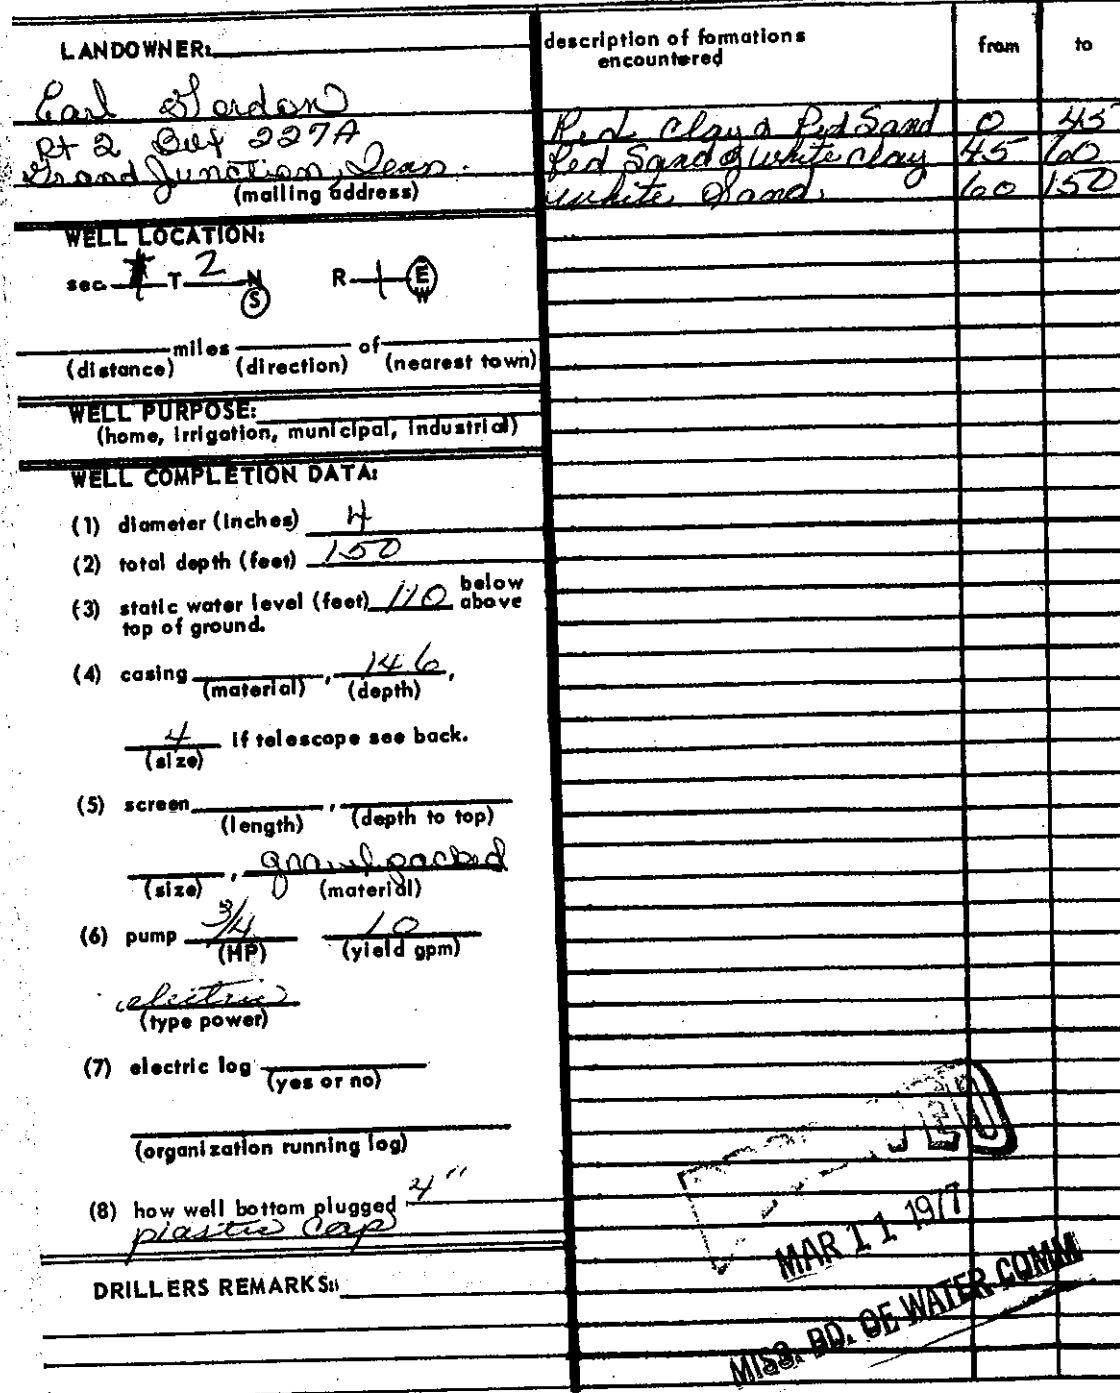 LANDOWNER:
Earl Gordon
Rt 2 Box 227A
Grand Junction, Tenn.
(mailing address)
WELL LOCATION:
sec. T 2 N
(S)
R 1 E
W
miles of
(distance) (direction) (nearest town)
WELL PURPOSE:
(home, irrigation, municipal, industrial)
WELL COMPLETION DATA:
(1) diameter (inches) 4
(2) total depth (feet) 150
(3) static water level (feet) 110 below
above
top of ground.
(4) casing , 146,
(material) (depth)
4 if telescope see back.
(size)
(5) screen ,
(length) (depth to top)
, gravel packed
(size) (material)
(6) pump 3/4 10
(HP) (yield gpm)
electric
(type power)
(7) electric log
(yes or no)
(organization running log)
(8) how well bottom plugged 4"
plastic cap
DRILLERS REMARKS:
description of formations
encountered
from to
Red clay & Red Sand 0 45
Red Sand & white clay 45 60
white Sand 60 150
MAR 11 1977
MISS. BD. OF WATER COMM